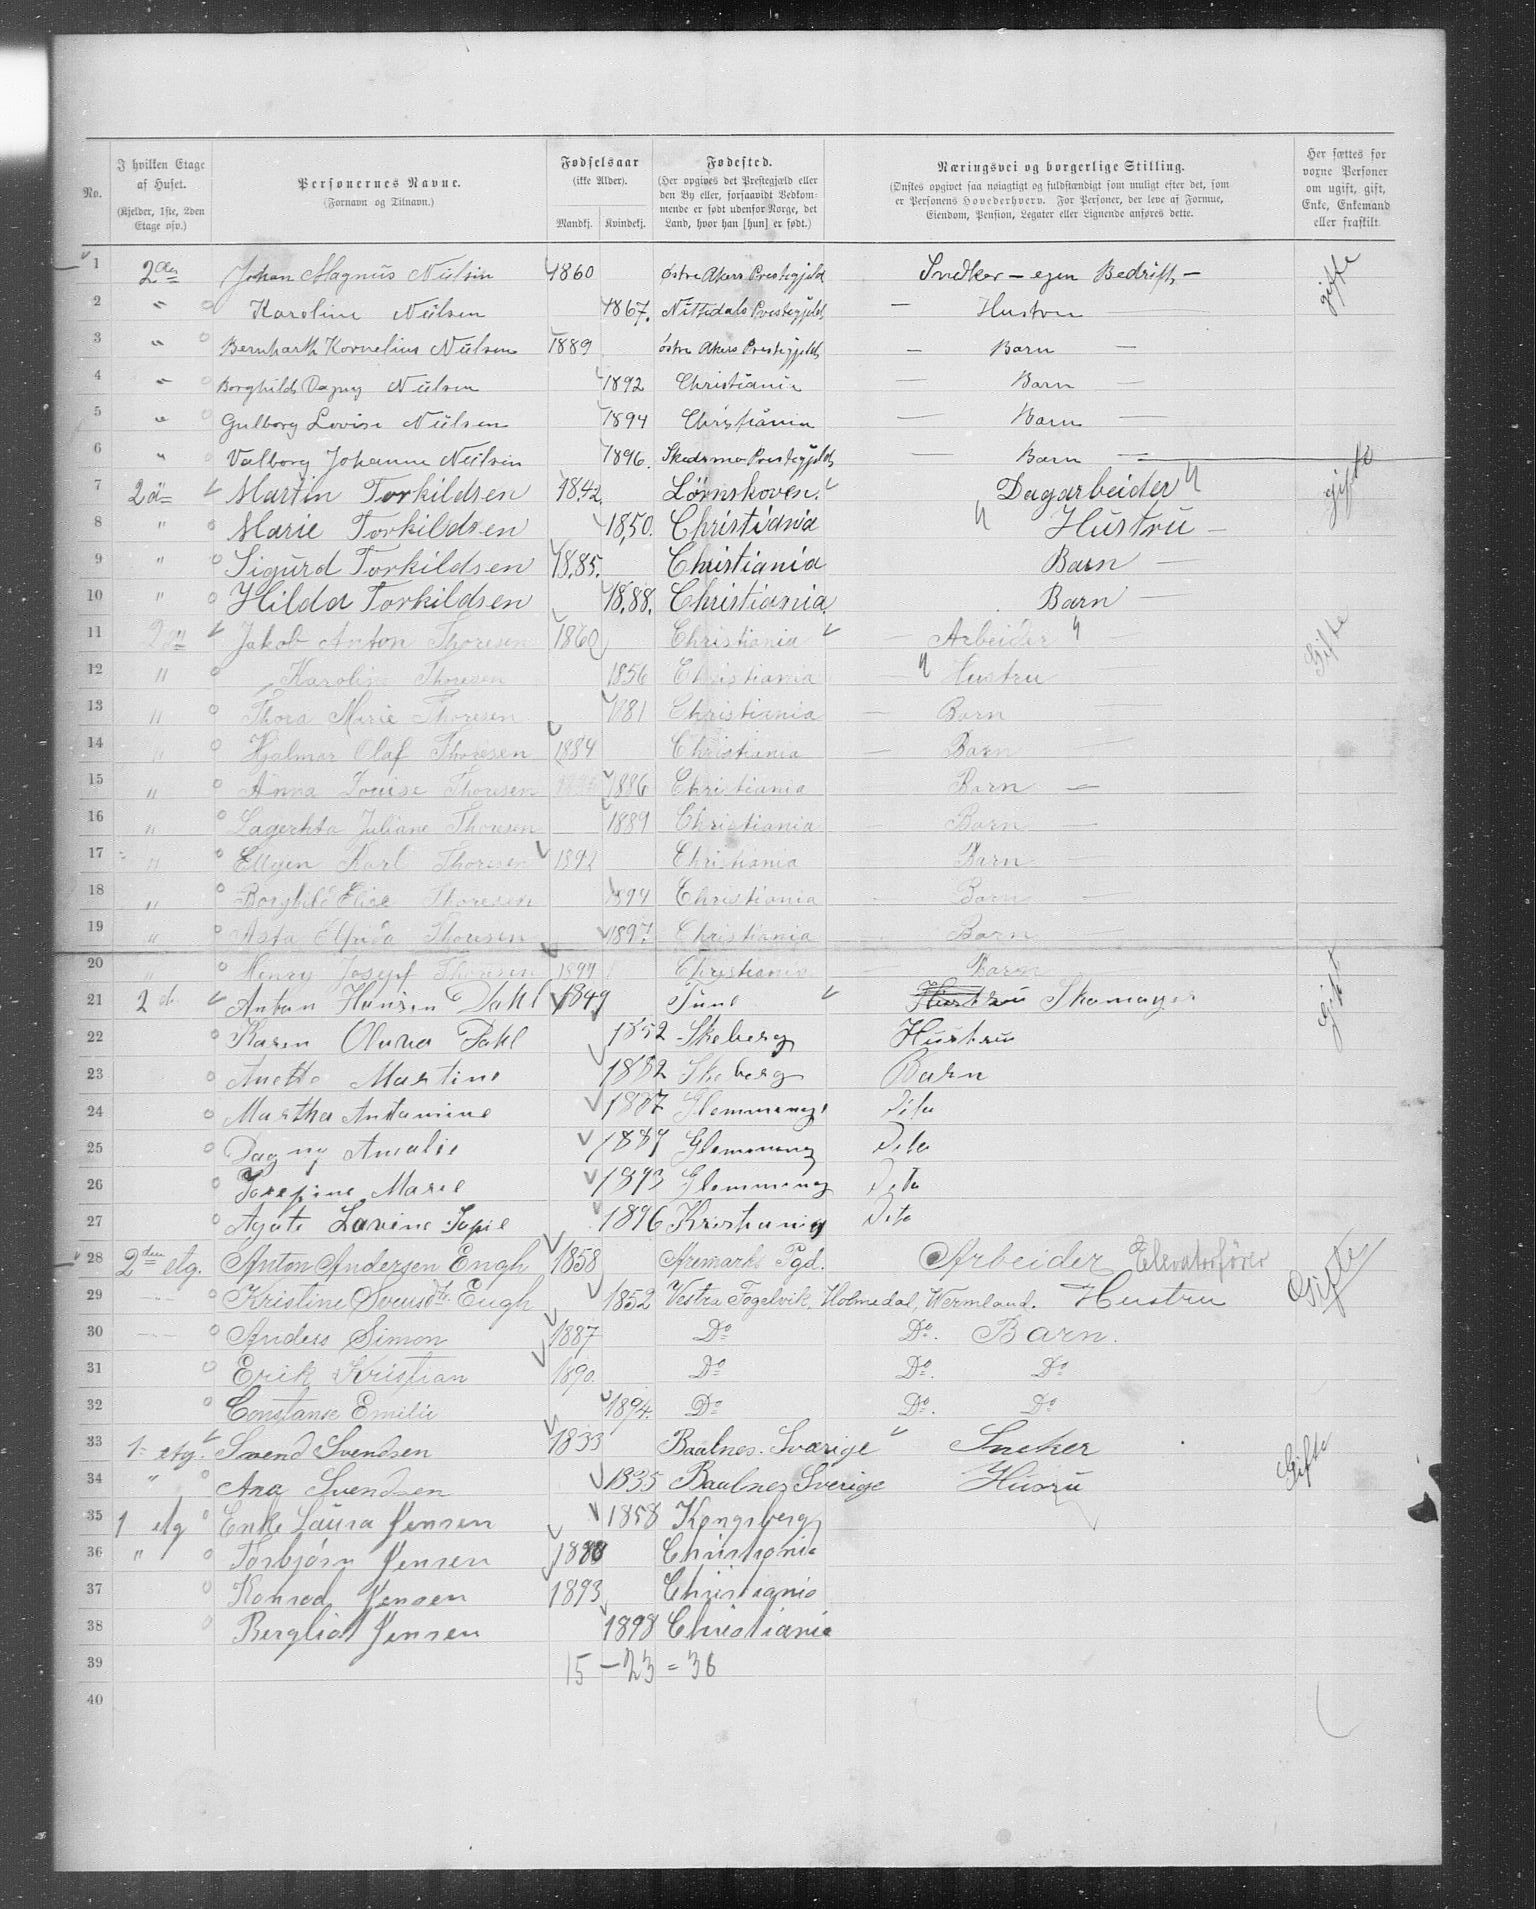 No.
I hvilken Etage af Huset. (Kjelder, 1ste, 2den Etage osv.)
Personernes Navne. (Fornavn og Tilnavn.)
Fødselsaar (ikke Alder). Mandkj. Kvindekj.
Fødested. (Her opgives det Prestegjæld eller den By eller, forsaavidt Vedkommende er født udenfor Norge, det Land, hvor han [hun] er født.)
Næringsvei og borgerlige Stilling. (Ønskes opgivet saa nøiagtigt og fuldstændigt som muligt efter det, som er Personens Hovederhverv. For Personer, der leve af Formue, Eiendom, Pension, Legater eller Lignende anføres dette.
Her sættes for voxne Personer om ugift, gift, Enke, Enkemand eller fraskilt
1 2den Johan Magnus Nielsen 1860 østre Akers Prestegjeld Snedker - egen Bedrift - gifte
2 " Karoline Nielsen 1867. Nittedals Prestegjeld - Hustru -
3 " Bernharth Kornelius Nielsen 1889 østre Akers Prestegjeld - Barn -
4 " Borghild Dagny Nielsen 1892 Christiania - Barn -
5 " Gulborg Lovise Nielsen 1894 Christiania - Barn -
6 " Valborg Johanne Nielsen 1896. Skedsmo Prestegjeld - Barn -
7 2d Martin Torkildsen 1842. Lørnskoven. Dagarbeider gifte
8 " Marie Torkildsen 18,50. Christiania Hustru -
9 " Sigurd Torkildsen 18.85. Christiania Barn -
10 " Hilda Torkildsen 18.88. Christiania. Barn -
11 2d Jakob Anton Thoresen 1860 Christiania - Arbeider Gifte
12 " Karoline Thoresen 1856 Christiania - Hustru
13 " Thora Marie Thoresen 1881 Christiania - Barn -
14 " Hjalmar Olaf Thoresen 1884 Christiania - Barn -
15 " Anna Louise Thoresen 1886 Christiania Barn -
16 " Lagerhta Juliane Thoresen 1889 Christiania - Barn -
17 " Eugen Karl Thoresen 1892 Christiania Barn -
18 " Borghild Elise Thoresen 1894 Christiania - Barn -
19 " Asta Elfrida Thoresen 1897. Christiania - Barn -
20 " Henry Josepf Thoresen 1899 Christiania - Barn
21 2d Anton Hansen Dahl 1849 Tune Hustru Skomager Gift
22 Karen Olava Dahl 1852 Skeberg Hustru
23 Anette Martine 1882 Skeberg Barn
24 Martha Antonine 1887 Glemmenge Dito
25 Dagny Amalie 1889 Glemmeng Dito
26 Josepine Marie 1893 Glemmeng Dito
27 Agate Lovine Sopie 1896 Kristiania Dito
28 2den etg. Anton Andersen Engh 1858 Aremarks Pgd. Arbeider Elevatorfører Gifte
29 " Kristine Svensdt. Engh 1852 Vestra Fogelvik, Holmedal, Wermland. Hustru
30 " Anders Simon 1887 Do Do. Barn.
31 Erik Kristian 1890. Do Do. Do
32 Constanse Emilie 1894. Do Do. Do
33 1- etg. Svend Svendsen 1833 Baalnes. Sværige Sneker Gifte
34 " Ana Svendsen 1835 Baalnes Sverige Husru
35 1 etg Enke Laura Jensen 1858 Kongsberg
36 " Torbjørn Jensen 1890 Christiania
37 Konrad Jensen 1893 Christiania
38 Bergliot Jensen 1898 Christiania
39 15 - 23 = 38
40